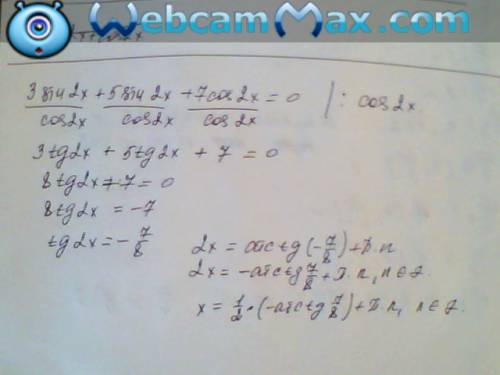 WebcamMax.com
3 sin 2x + 5 sin 2x + 7 cos 2x = 0 | : cos 2x
cos 2x cos 2x cos 2x
3 tg 2x + 5 tg 2x + 7 = 0
8 tg 2x + 7 = 0
8 tg 2x = -7
tg 2x = - 7/8
2x = arctg (- 7/8) + π·n
2x = - arctg 7/8 + π·n, n ∈ Z.
x = 1/2 · (- arctg 7/8) + π·n, n ∈ Z.